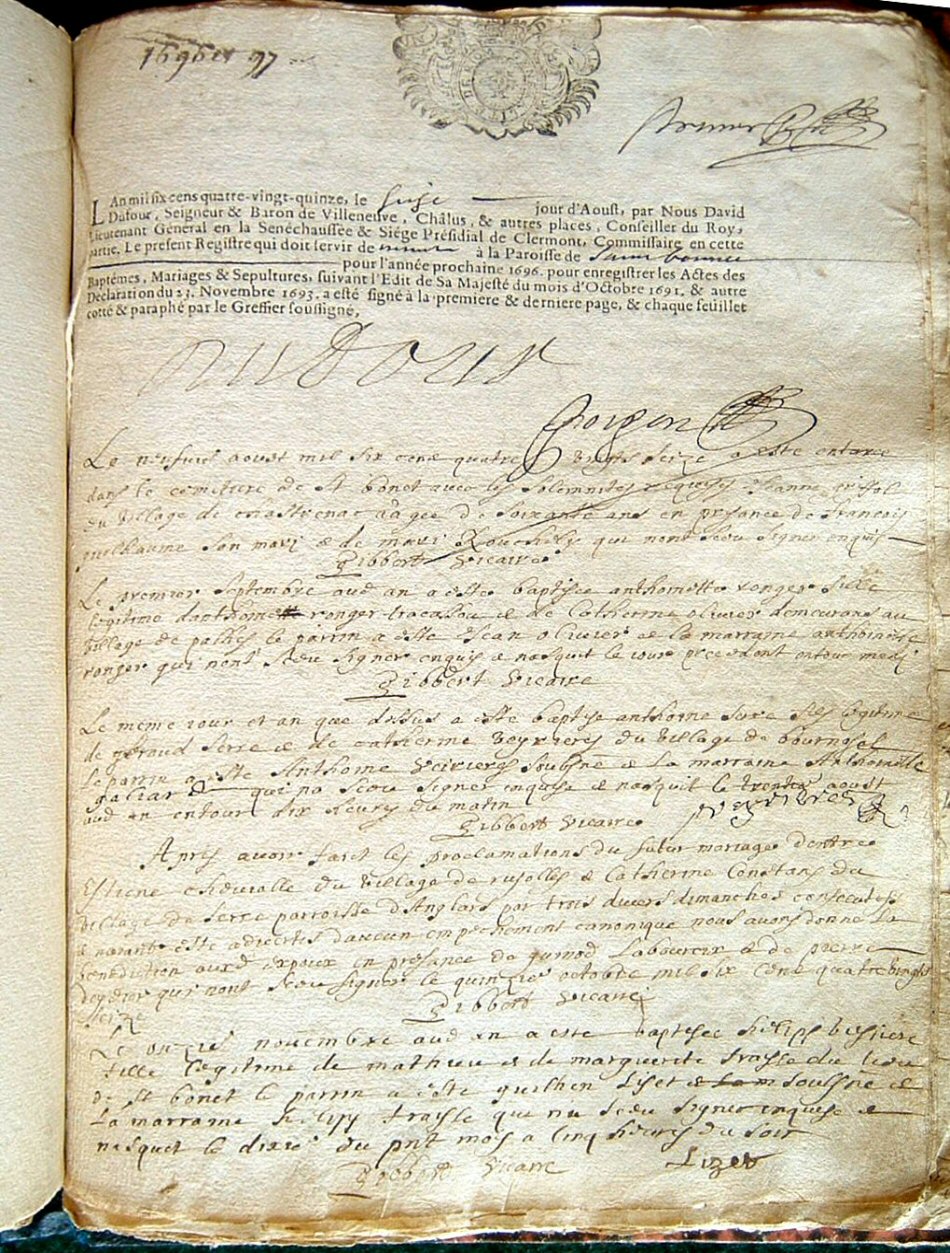 1696 et 97
premier
L'An mil six-cens quatre-vingt-quinze, le seize jour d'Aoust, par Nous David
Dufour, Seigneur & Baron de Villeneuve, Châlus, & autres places, Conseiller du Roy,
Lieutenant Général en la Senéchaussée & Siége Présidial de Clermont, Commissaire en cette
partie. Le present Registre qui doit servir de minute à la Paroisse de Saint bonnet
pour l'année prochaine 1696. pour enregistrer les Actes des
Baptêmes, Mariages & Sepultures, suivant l'Edit de Sa Majesté du mois d'Octobre 1691. & autre
Declaration du 23. Novembre 1693. a esté signé à la premiere & derniere page, & chaque feuillet
cotté & paraphé par le Greffier soussigné,
Dufour
Le neufvie aoust mil six cens quatre vingts seize a este enterre
dans le cemitiere de St bonet avec les solemnites requises Jeanne
du village de aagee de soixante ans en presance de francois
guillaume son mary & de qui nont sceu signer enquis
Gibbert vicaire
Le premier septembre aud an a este baptisee anthoinette ronger fille
legitime danthoine ronger & de Catherine olivier demeurans au
village de le parrin a este Jean olivier & la marraine anthoinette
ronger qui nont sceu signer enquis & nasquit le iour precedent entour medi
Gibbert vicaire
Le meme iour et an que dessus a este baptise anthoine serre fils legitime
de geraud serre & de catherine veyrieres du village de bournasel
le parrin a este Anthoine veirieres sousigne & la marraine Anthoinette
galiard qui na sceu signer enquise & nasquit le trentie aoust
aud an entour dix heures du matin
Gibbert vicaire veyrieres
Apres avoir faict les proclamations du futur mariage dentre
Estiene du village de & Catherine Constans du
village de serre parroisse d'Anglars par trois divers dimanches consecutifs
& nayant este advertis daucun empechement canonique nous avons donne la
benediction auxd expoux en presance de Labourcix & de pierre
qui nont sceu signer le quinzie octobre mil six cens quatre vinght
seize
Gibbert vicaire
Le onzie novembre aud an a este baptisee
fille legitime de mathieu & de marguerite fraysse du lieu
de St bonet le parrin a este guilhen Liset soussne &
La marraine fraysse qui na sceu signer enquise &
nasquit le dixie du pnt mois a cinq heures du soir
Gibbert vicaire Lizet